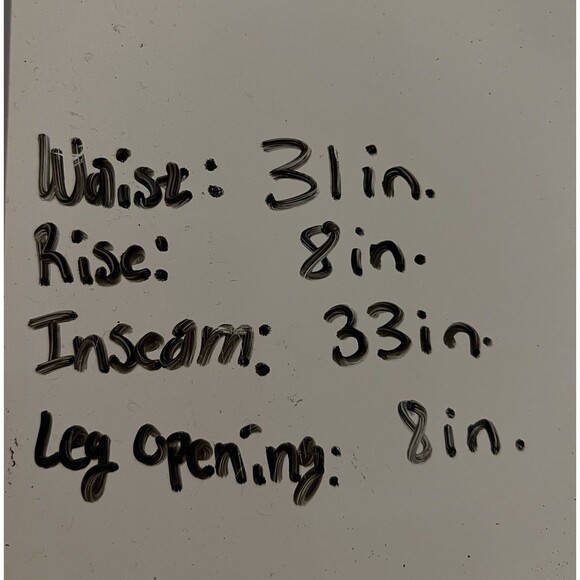 Waist: 31in.
Rise: 8in.
Inseam: 33in.
Leg opening: 8in.